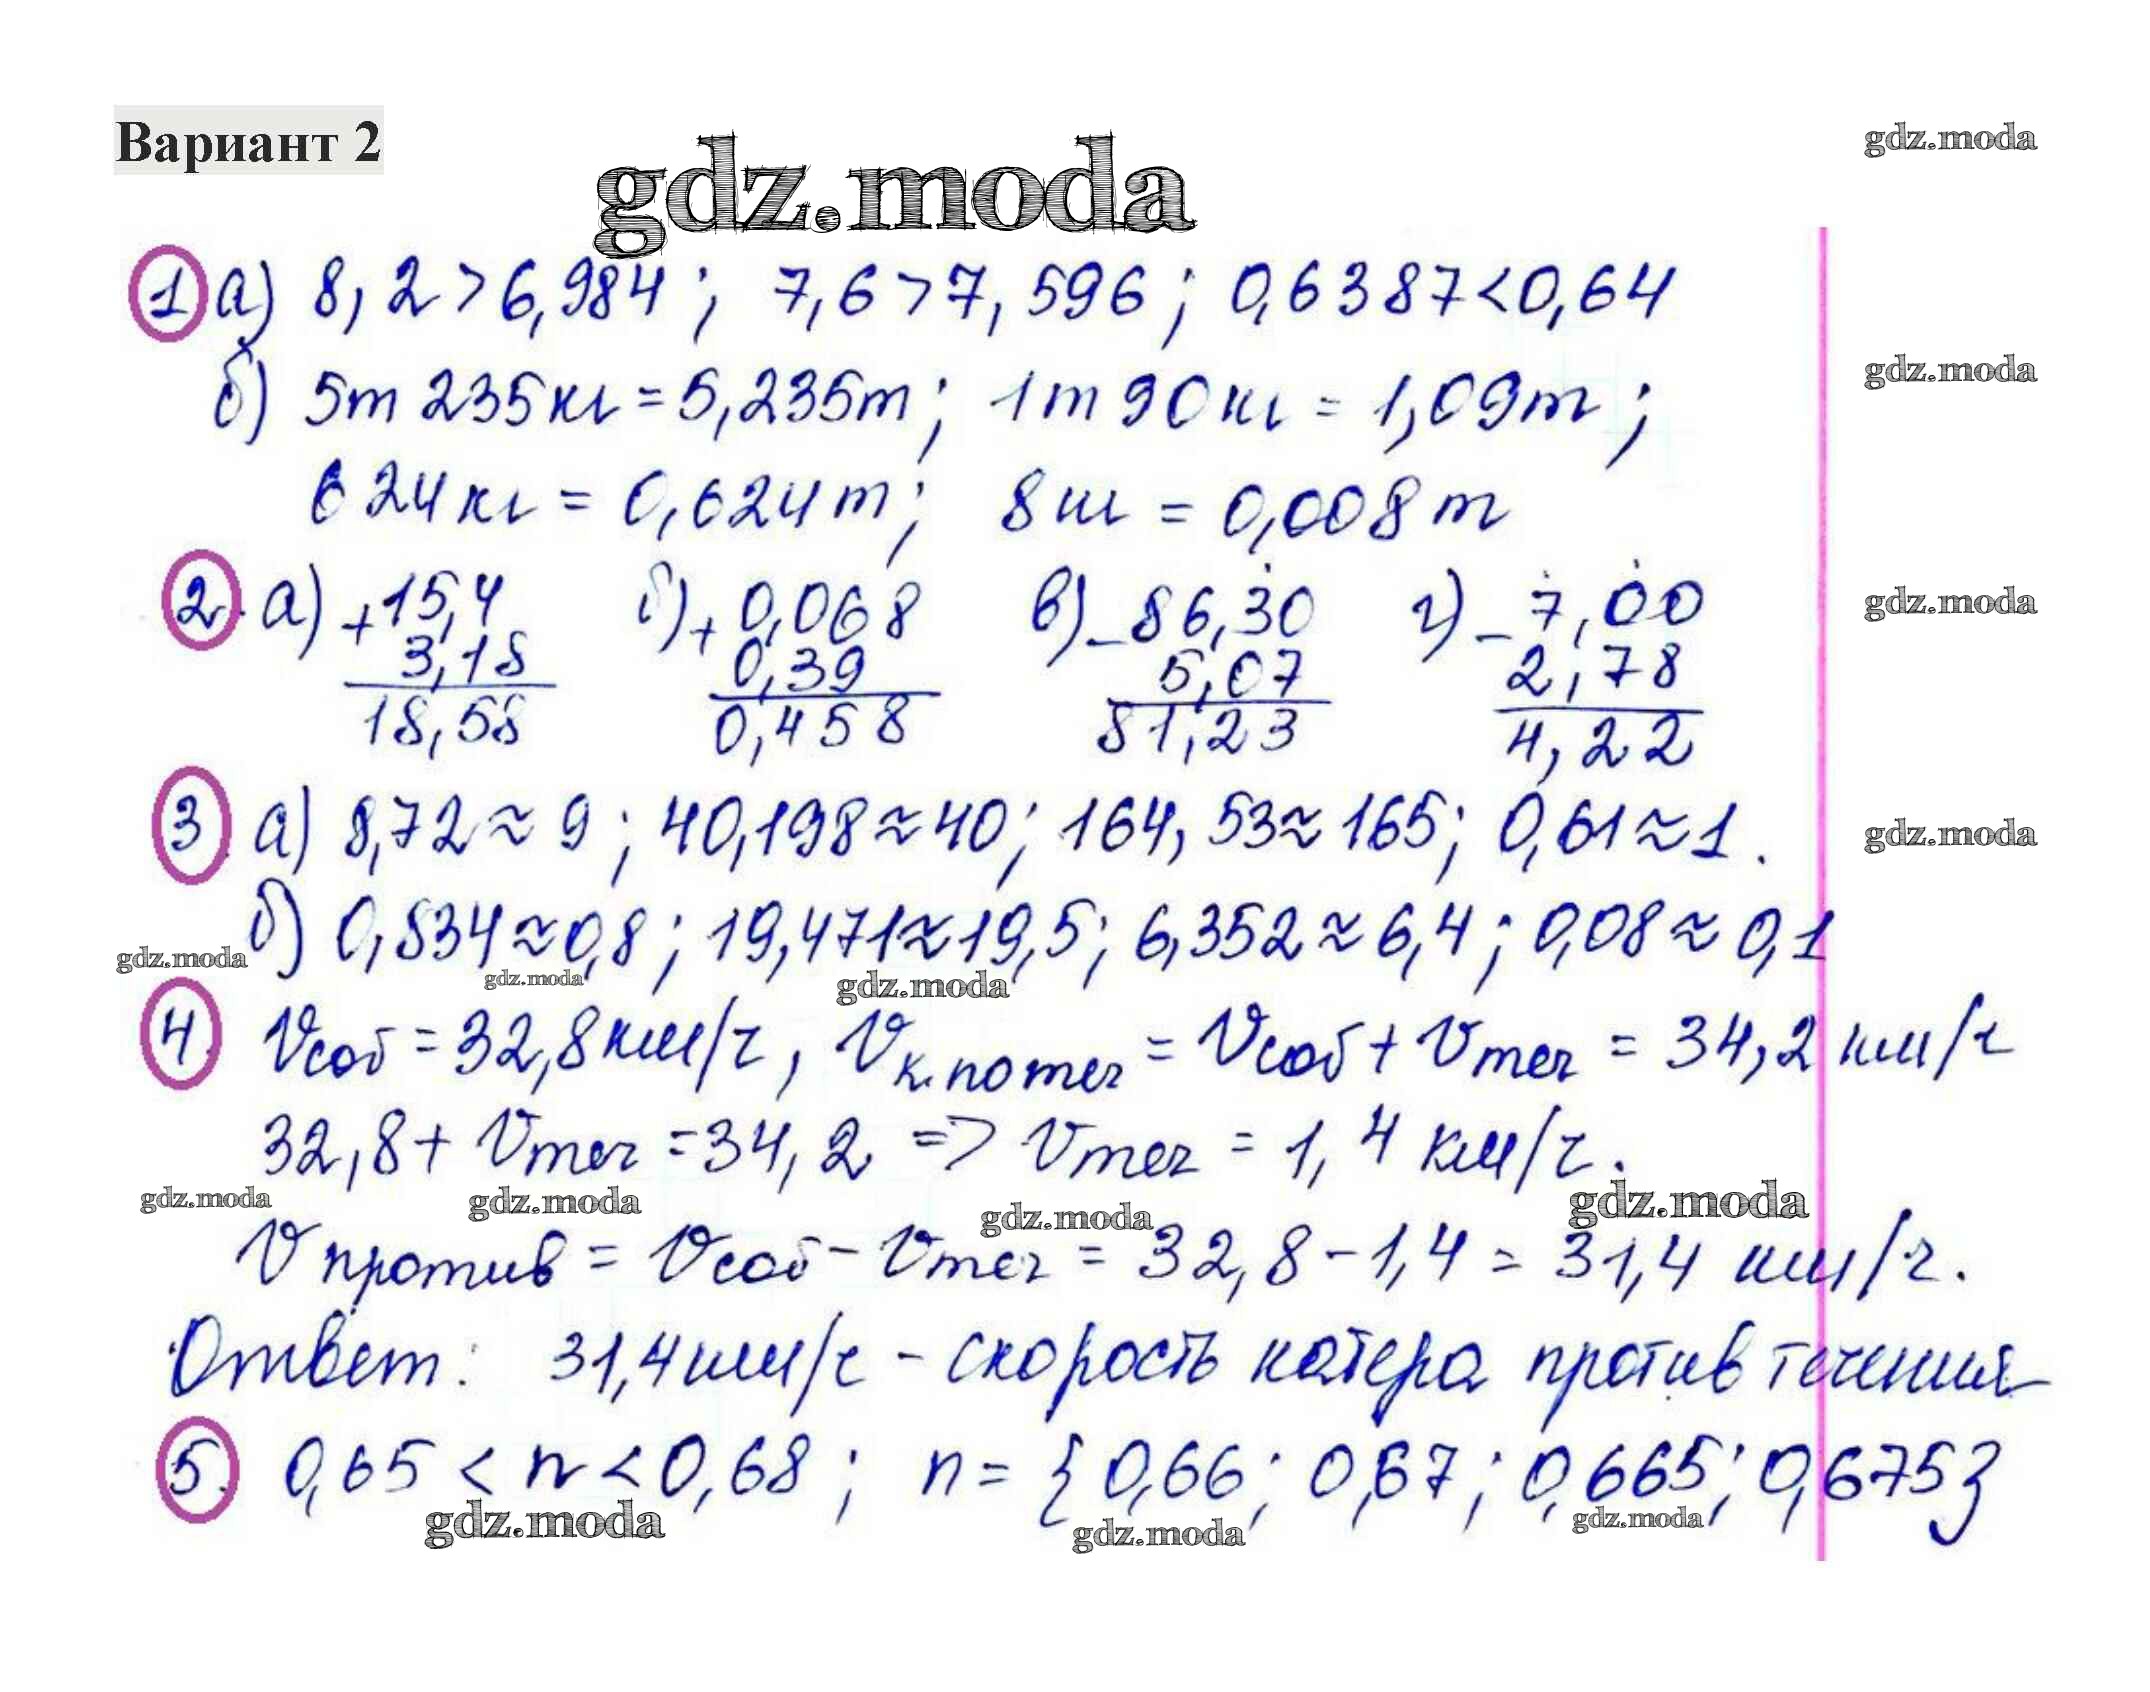 Вариант 2
gdz.moda
gdz.moda
1 а) 8,2>6,984; 7,6>7,596; 0,6387<0,64
б) 5т 235кг=5,235т; 1т 90кг=1,09т;
gdz.moda
624кг=0,624т; 8кг=0,008т
2. а) +15,4 б) +0,068 в) -86,30 г) -7,00
gdz.moda
3,18 0,39 5,07 2,78
18,58 0,458 81,23 4,22
3. а) 8,72≈9; 40,198≈40; 164,53≈165; 0,61≈1.
gdz.moda
б) 0,834≈0,8; 19,471≈19,5; 6,352≈6,4; 0,08≈0,1
gdz.moda gdz.moda gdz.moda
4. Vсоб=32,8км/ч, Vк.по теч=Vсоб+Vтеч=34,2 км/ч
32,8+Vтеч=34,2 => Vтеч=1,4 км/ч.
gdz.moda gdz.moda gdz.moda gdz.moda
Vпротив=Vсоб-Vтеч=32,8-1,4=31,4 км/ч.
Ответ: 31,4км/ч - скорость катера против течения
5. 0,65<n<0,68; n={0,66; 0,67; 0,665; 0,675}
gdz.moda gdz.moda gdz.moda